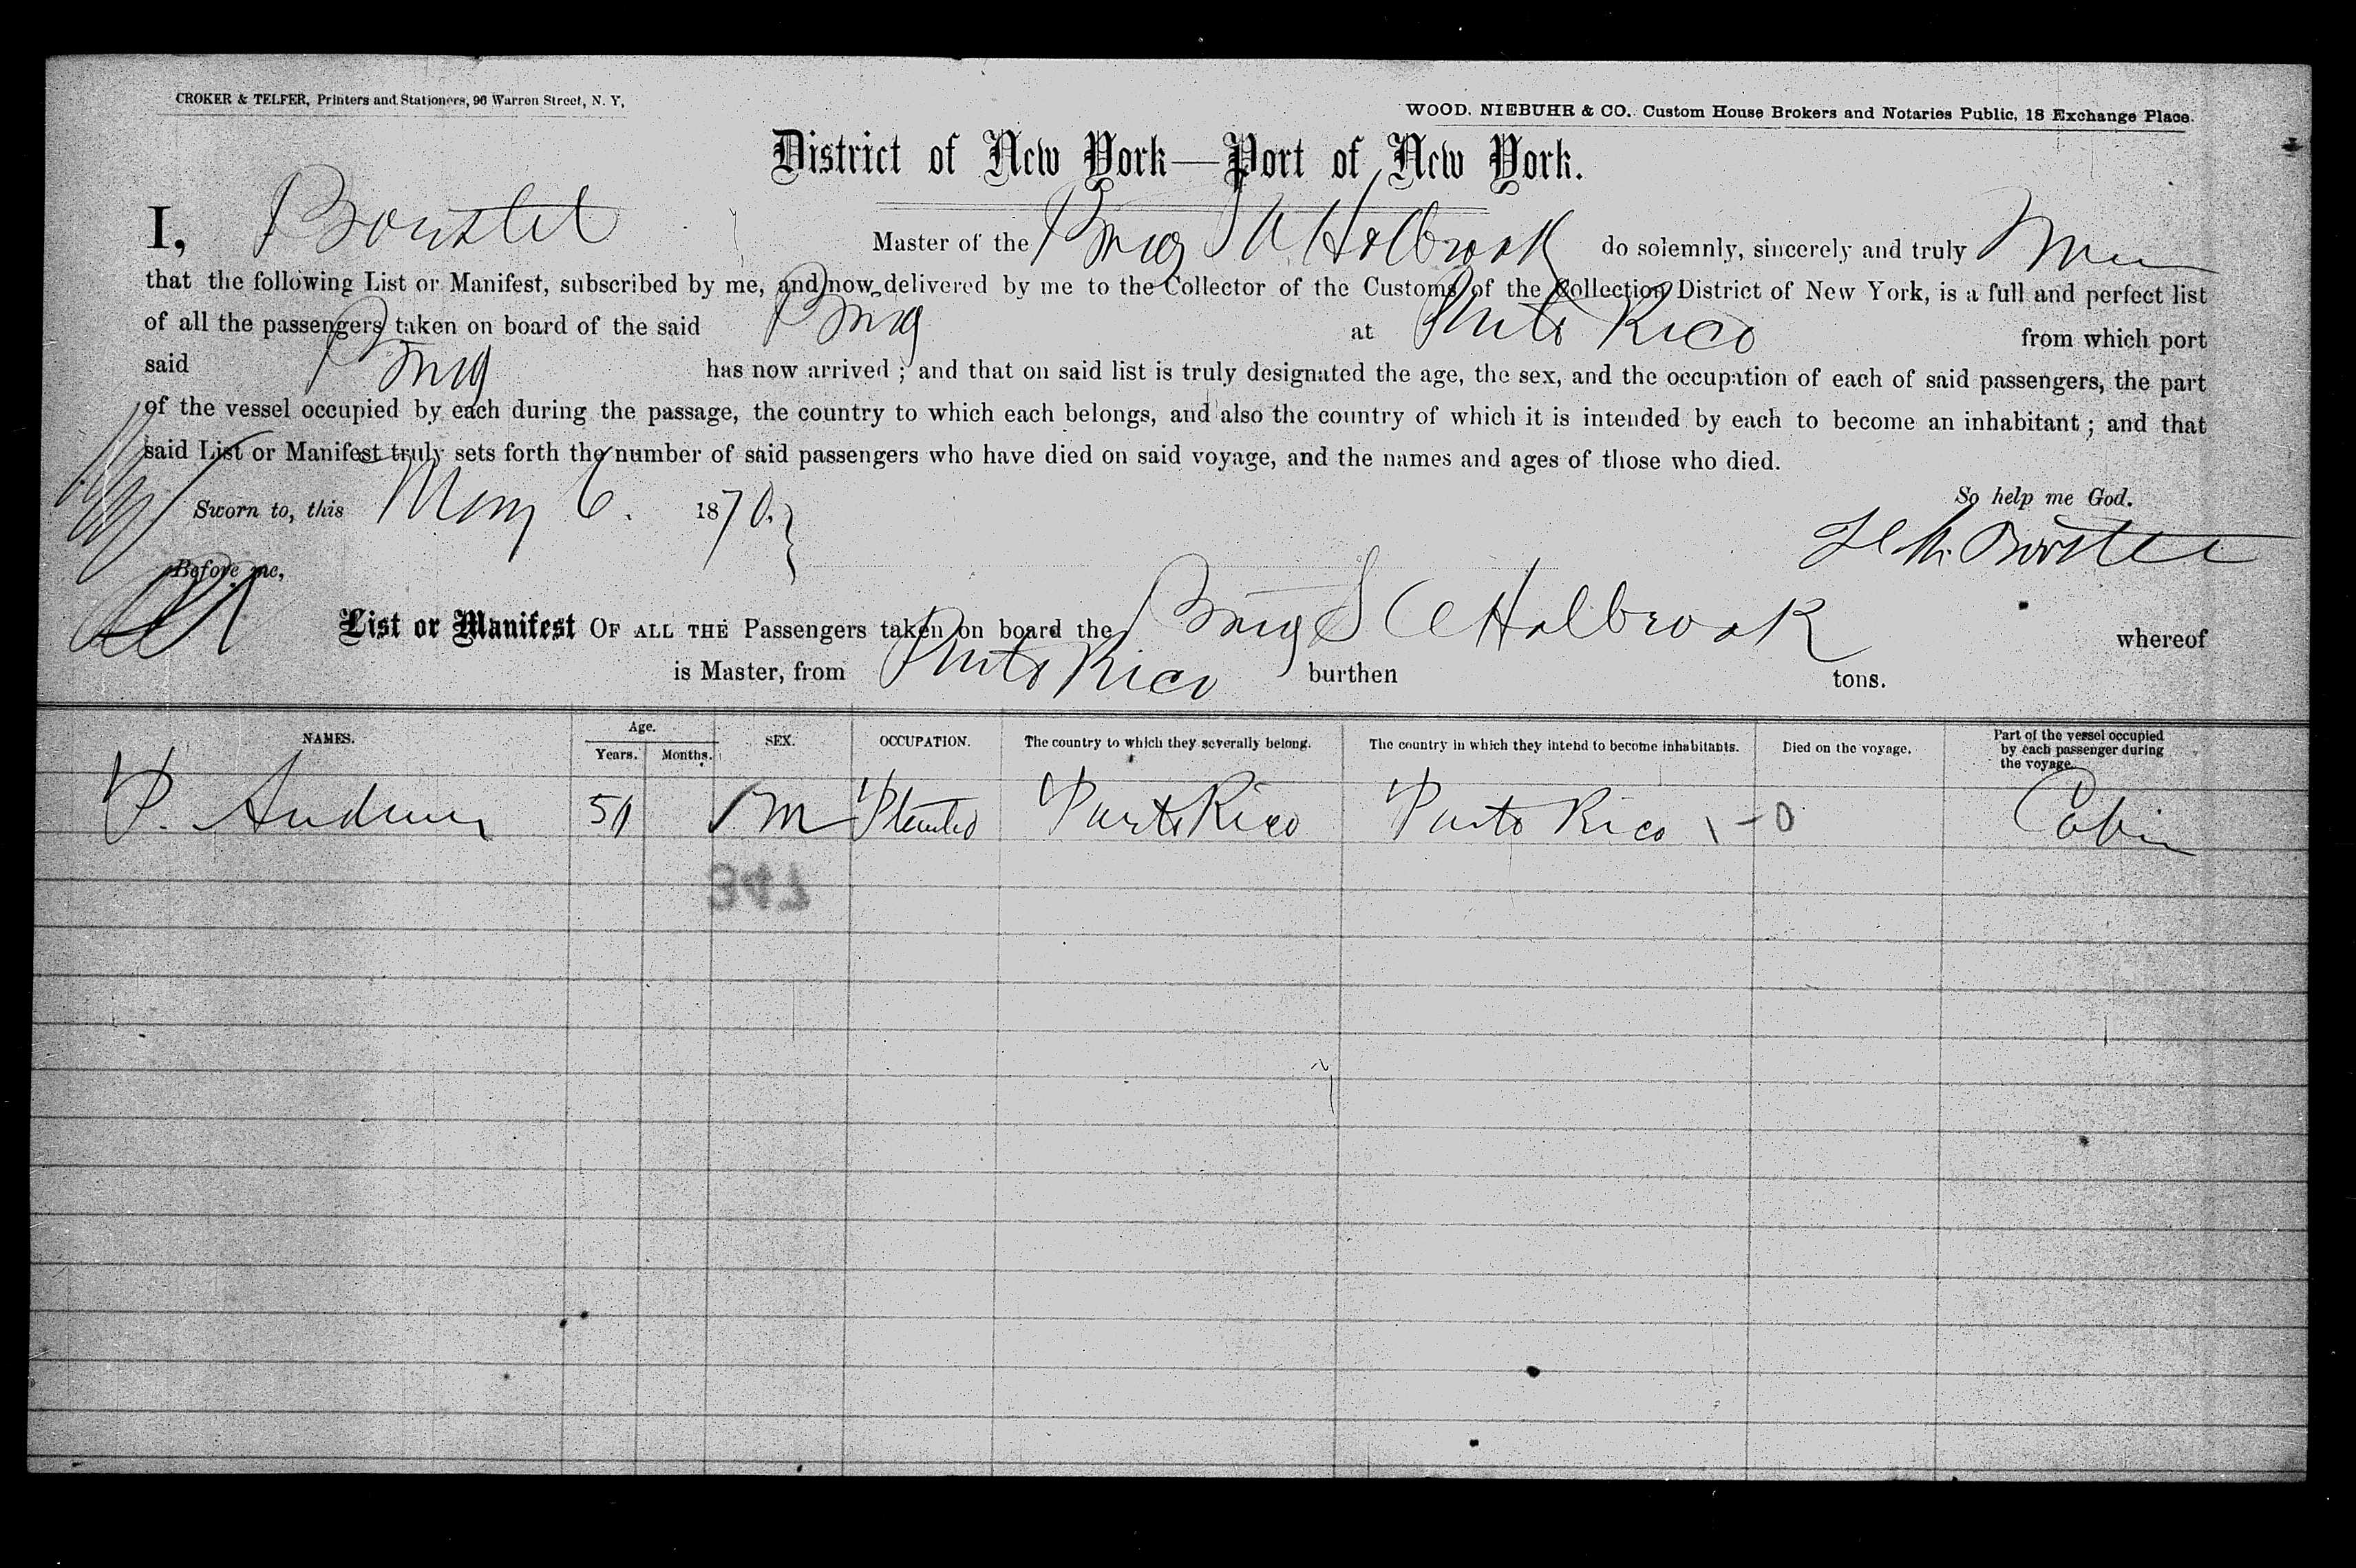 CROKER & TELFER, Printers and Stationers, 96 Warren Street, N. Y.
WOOD, NIEBUHR & CO. Custom House Brokers and Notaries Public, 18 Exchange Place.
District of New York—Port of New York.
I, Master of the Brig S A Holbrook do solemnly, sincerely and truly
that the following List or Manifest, subscribed by me, and now delivered by me to the Collector of the Customs of the Collection District of New York, is a full and perfect list
of all the passengers taken on board of the said Brig at Porto Rico from which port
said Brig has now arrived ; and that on said list is truly designated the age, the sex, and the occupation of each of said passengers, the part
of the vessel occupied by each during the passage, the country to which each belongs, and also the country of which it is intended by each to become an inhabitant ; and that
said List or Manifest truly sets forth the number of said passengers who have died on said voyage, and the names and ages of those who died.
So help me God.
Sworn to, this May 6. 1870.
Before me,
List or Manifest OF ALL THE Passengers taken on board the Brig S A Holbrook whereof
is Master, from Porto Rico burthen tons.
NAMES. Age. Years. Months. SEX. OCCUPATION. The country to which they severally belong. The country in which they intend to become inhabitants. Died on the voyage. Part of the vessel occupied by each passenger during the voyage.
P. M Porto Rico Porto Rico 0 Cabin
347